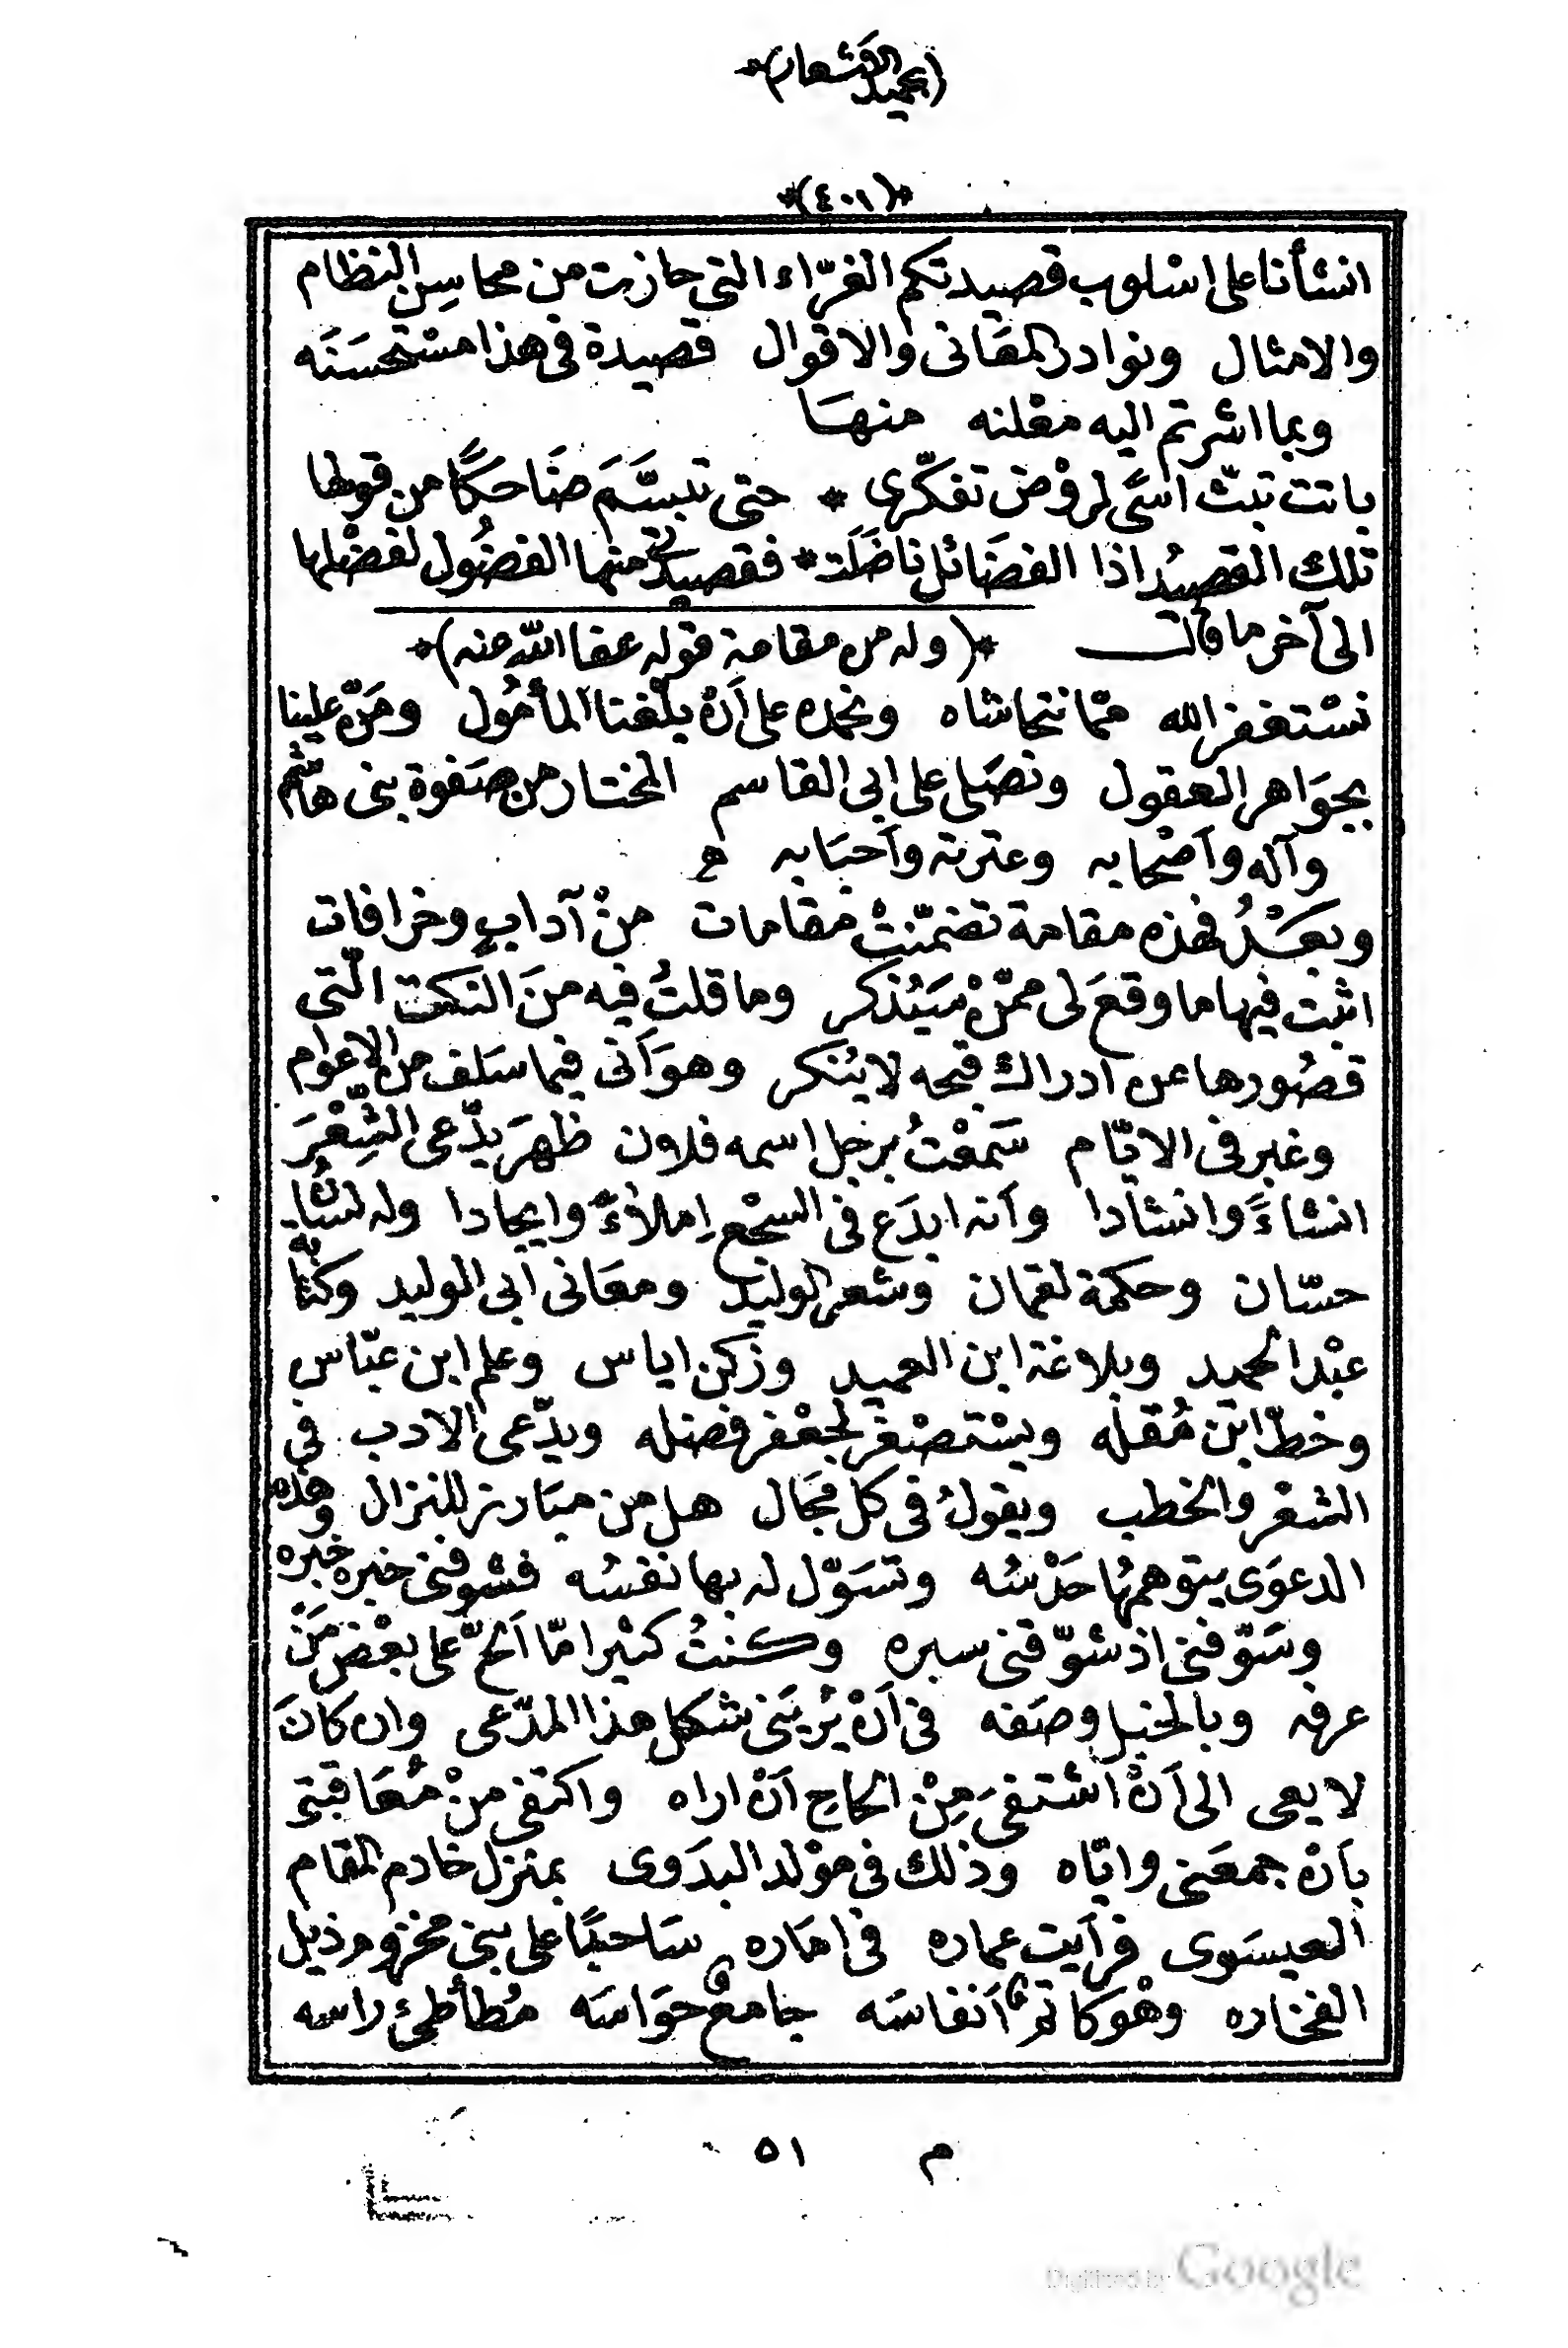 *(٤٠١)*
انشأنا على اسْلوب قصيدتكم الغرّاء التى حازت من محاسِن النظام
والامثال ونوادر المعَانى والاقوال قصيدة فى هذا مسْتحسَنَه
وبما اشرتم اليه معْلنه منهَا
باتت تبثّ اسًى لروْض تفكّرى * حتى تبسَّمَ ضَاحكًا من قولها
تلك القصيدُ اذا الفضَائل ناضَلَت * فقصيدتى منها الفضُول لفضْلها
الى آخر ما قال *(وله من مقامة قوله عفا الله عنه)*
نسْتغفر الله ممّا نتحاشاه ونحمده على أنْ بلّغنا المأمُول ومَنّ علينا
بجوَاهر العقول ونصَلى على ابى القاسم المختار من صَفوة بنى هاشم
وآله وأصْحابه وعترته وأحبَابه
وبعْدُ فهذه مقامة تضمّنتْ مقامات منْ آدابٍ وخرافات
اثبت فيها ما وقعَ لى ممّنْ سَيُذكر وما قلتُ فيه منَ النكت الّتى
قصُورها عن ادراك قبحه لا يُنكر وهوَ أنى فيما سَلف من الاعوام
وغبر فى الايّام سَمعْتُ برجل اسمه فلان ظهرَ يدّعى الشّعْرَ
انشاءً وانشادا وأنه ابدَع فى السجْع إملاءً وايجادا وله لسَانُ
حسّان وحكمة لقمان وشعر الوليد ومعَانى أبى الوليد وكتابة
عبْد الحميد وبلاغة ابن العميد وزكن اياس وعلم ابن عبّاس
وخطّ ابن مُقله ويسْتصْغر لجعْفر فضله ويدّعى الادب فى
الشعْر والخطب ويقولُ فى كل مجَال هل من مبَارز للنزال وهذه
الدعوَى يتوهمهُا حَدْسُه وتسَوّل له بها نفسُه فشوقنى خبره خبره
وسَوّفنى اذ شوّقنى سبره وكنتُ كثيرا مّا ألحّ على بعْض مَنْ
عرفه وبالخبل وصَفه فى أنْ يُريَنى شكل هذا المدّعى وان كانَ
لا يعى الى أنْ اشتفىَ مِنْ الحاح أنْ اراه واكتفى منْ مُعَاقبتى
بأنْ جمعَنى وايّاه وذلك فى موْلد البدَوى بمنزل خادم المقام
العيسَوى فرأيت عماره فى امَاره سَاحبًا على بنى مخزوم ذيل
الفخاره وهْوَ كاتمٌ أنفاسَه جامعٌ حوَاسَه مُطأطئ راسه
م ٥١
Digitized by Google